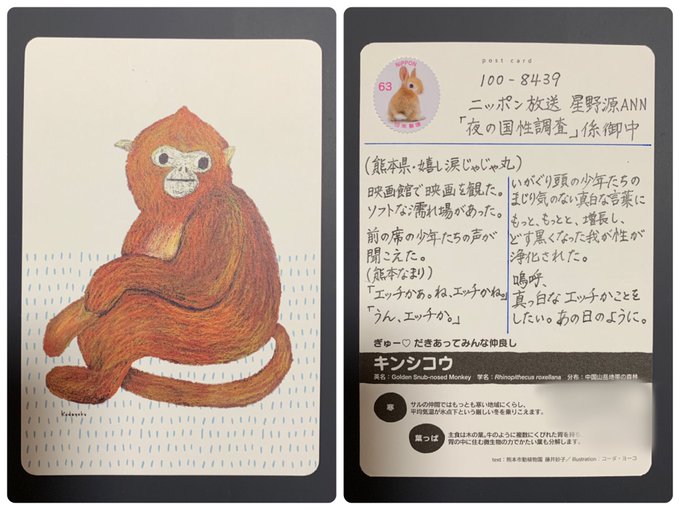 Kodayoko
post card
NIPPON
63
日本郵便
100-8439
ニッポン放送 星野源ANN
「夜の国性調査」係御中
(熊本県・嬉し涙じゃじゃ丸)
映画館で映画を観た。
ソフトな濡れ場があった。
前の席の少年たちの声が
聞こえた。
(熊本なまり)
「エッチかぁ。ね、エッチかね。」
「うん、エッチか。」
いがぐり頭の少年たちの
まじり気のない真白な言葉に
もっと、もっと、増長し、
どす黒くなった我が性が
浄化された。
嗚呼、
真っ白なエッチかことを
したい。あの日のように。
ぎゅー♡ だきあってみんな仲良し
キンシコウ
英名：Golden Snub-nosed Monkey 学名：Rhinopithecus roxellana 分布：中国山岳地帯の森林
寒
サルの仲間ではもっとも寒い地域にくらし、
平均気温が氷点下という厳しい冬を乗りこえます。
葉っぱ
主食は木の葉。牛のように複数にくびれた胃を持ち
胃の中に住む微生物の力でかたい葉も分解します。
text：熊本市動植物園 藤井紗子／illustration：コーダ・ヨーコ